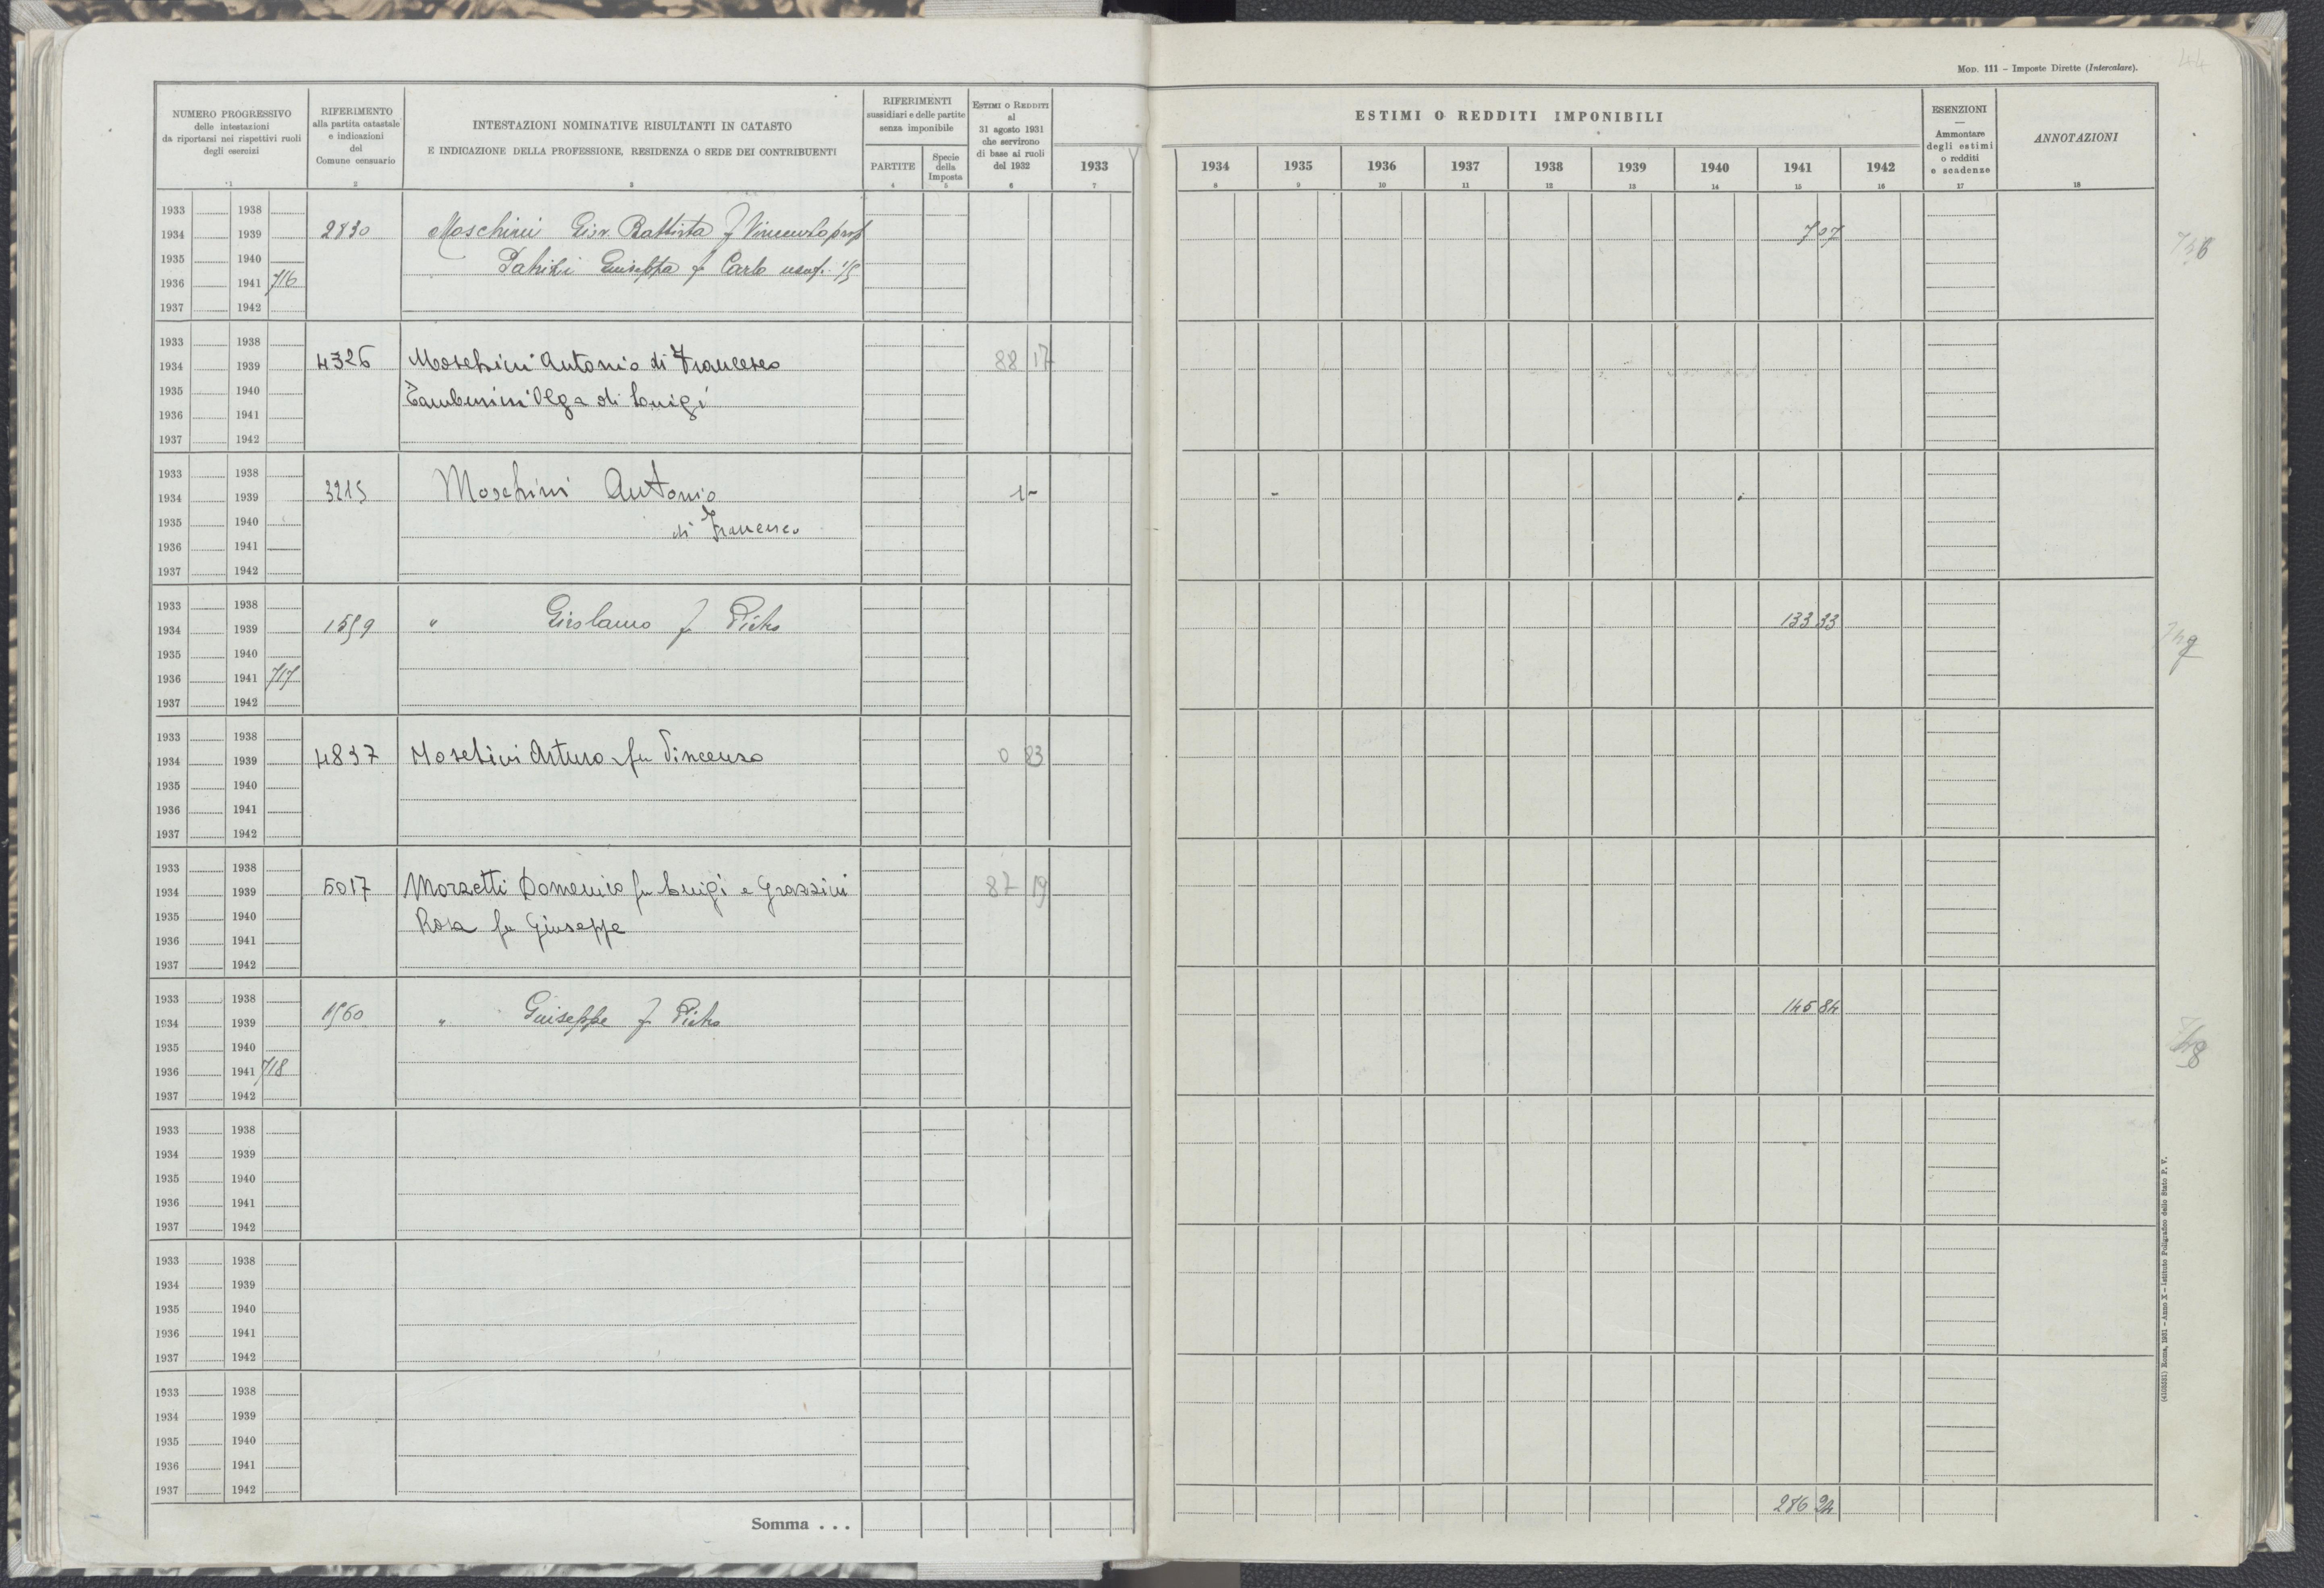 44
Mod. 111 - Imposte Dirette (Intercalare).
NUMERO PROGRESSIVO delle intestazioni da riportarsi nei rispettivi ruoli degli esercizi
RIFERIMENTO alla partita catastale e indicazioni del Comune censuario
INTESTAZIONI NOMINATIVE RISULTANTI IN CATASTO
E INDICAZIONE DELLA PROFESSIONE, RESIDENZA O SEDE DEI CONTRIBUENTI
RIFERIMENTI sussidiari e delle partite senza imponibile
PARTITE
Specie della Imposta
Estimi o Redditi al 31 agosto 1931 che servirono di base ai ruoli del 1932
1933
ESTIMI O REDDITI IMPONIBILI
1934 1935 1936 1937 1938 1939 1940 1941 1942
ESENZIONI — Ammontare degli estimi o redditi e scadenze
ANNOTAZIONI
1 2 3 4 5 6 7 8 9 10 11 12 13 14 15 16 17 18
1933 1938
1934 1939 2830 Moschini Giov. Battista f Vincenzo prop 7 07
1935 1940 Giuseppa f Carlo usuf. 1/5
1936 1941 716
1937 1942
1933 1938
1934 1939 4326 Moschini Antonio di Francesco 88 17
1935 1940 Tamburini Olga di Luigi
1936 1941
1937 1942
1933 1938
1934 1939 3215 Moschini Antonio 1 -
1935 1940 di Francesco
1936 1941
1937 1942
1933 1938
1934 1939 1559 " Girolamo f Pietro 133 33
1935 1940
1936 1941 717
1937 1942
1933 1938
1934 1939 4837 Moschini Arturo fu Vincenzo 0 83
1935 1940
1936 1941
1937 1942
1933 1938
1934 1939 5017 Morzetti Domenico fu Luigi e Grassini 87 19
1935 1940 Rosa fu Giuseppe
1936 1941
1937 1942
1933 1938
1934 1939 1560 " Giuseppe f Pietro 145 84
1935 1940
1936 1941 718
1937 1942
1933 1938
1934 1939
1935 1940
1936 1941
1937 1942
1933 1938
1934 1939
1935 1940
1936 1941
1937 1942
1933 1938
1934 1939
1935 1940
1936 1941
1937 1942
Somma . . . 286 24
(4103531) Roma, 1931 - Anno X - Istituto Poligrafico dello Stato P. V.